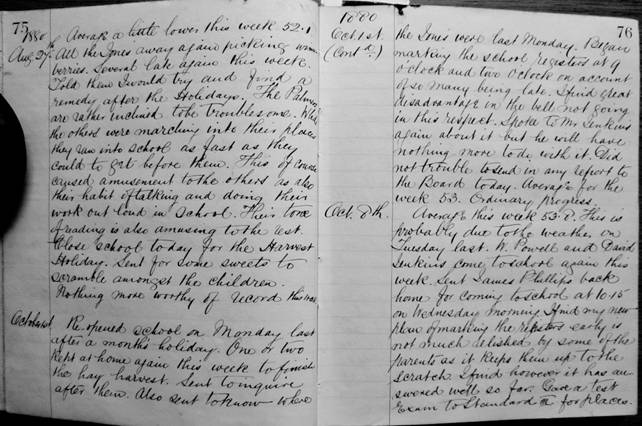 75
1880
Aug 27th
Average a little lower this week 52.1
All the Jones away again picking
berries. Several late again this week.
Told them I would try and find a
remedy after the Holidays. The Palmers
are rather inclined to be troublesome. While
the others were marching into their places
they ran into school as fast as they
could to get before them. This of course
caused amusement to the others as also
their habit of talking and doing their
work out loud in school. Their tone
of reading is also amusing to the rest.
Close school today for the Harvest
Holiday. Sent for some sweets to
scramble amongst the children.
Nothing more worthy of record this
October 1st
Re-opened school on Monday last
after a month's holiday. One or two
kept at home again this week to finish
the hay harvest. Sent to inquire
after them. Also sent to know where
76
1880
Oct 1st
(Contd)
the Jones were last Monday. Began
marking the school registers at 9
o'clock and two o'clock on account
of so many being late. I find great
disadvantage in the bell not going
in this respect. Spoke to Mr Jenkins
again about it but he will have
nothing more to do with it. Did
not trouble to send in any report to
the Board today. Average for the
week 53. Ordinary progress.
Oct. 8th.
Average this week 53.8. This is
probably due to the weather on
Tuesday last. W. Powell and David
Jenkins come to school again this
week. Sent James Phillips back
home for coming to school at 10.15
on Wednesday morning. I find my new
plan of marking the registers early is
not much relished by some of the
parents as it keeps them up to the
scratch. I find however it has an-
swered well so far. Had a test
Exam to Standard II for places.